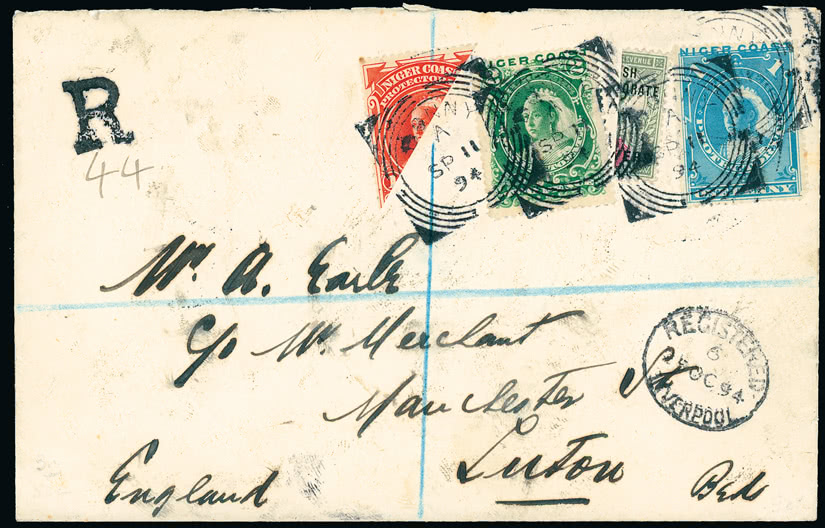 R
44
NIGER COAST
PROTECTOR
NIGER COAST
REVENUE
SH
ORATE
NIGER COAST
1
PROTECTORATE
NY
A
SP 11
94
SP 1
94
Mr. A. Earle
c/o Mr. Merchant
Manchester St
Luton
England
Beds
REGISTERED
6
5 OC 94
LIVERPOOL